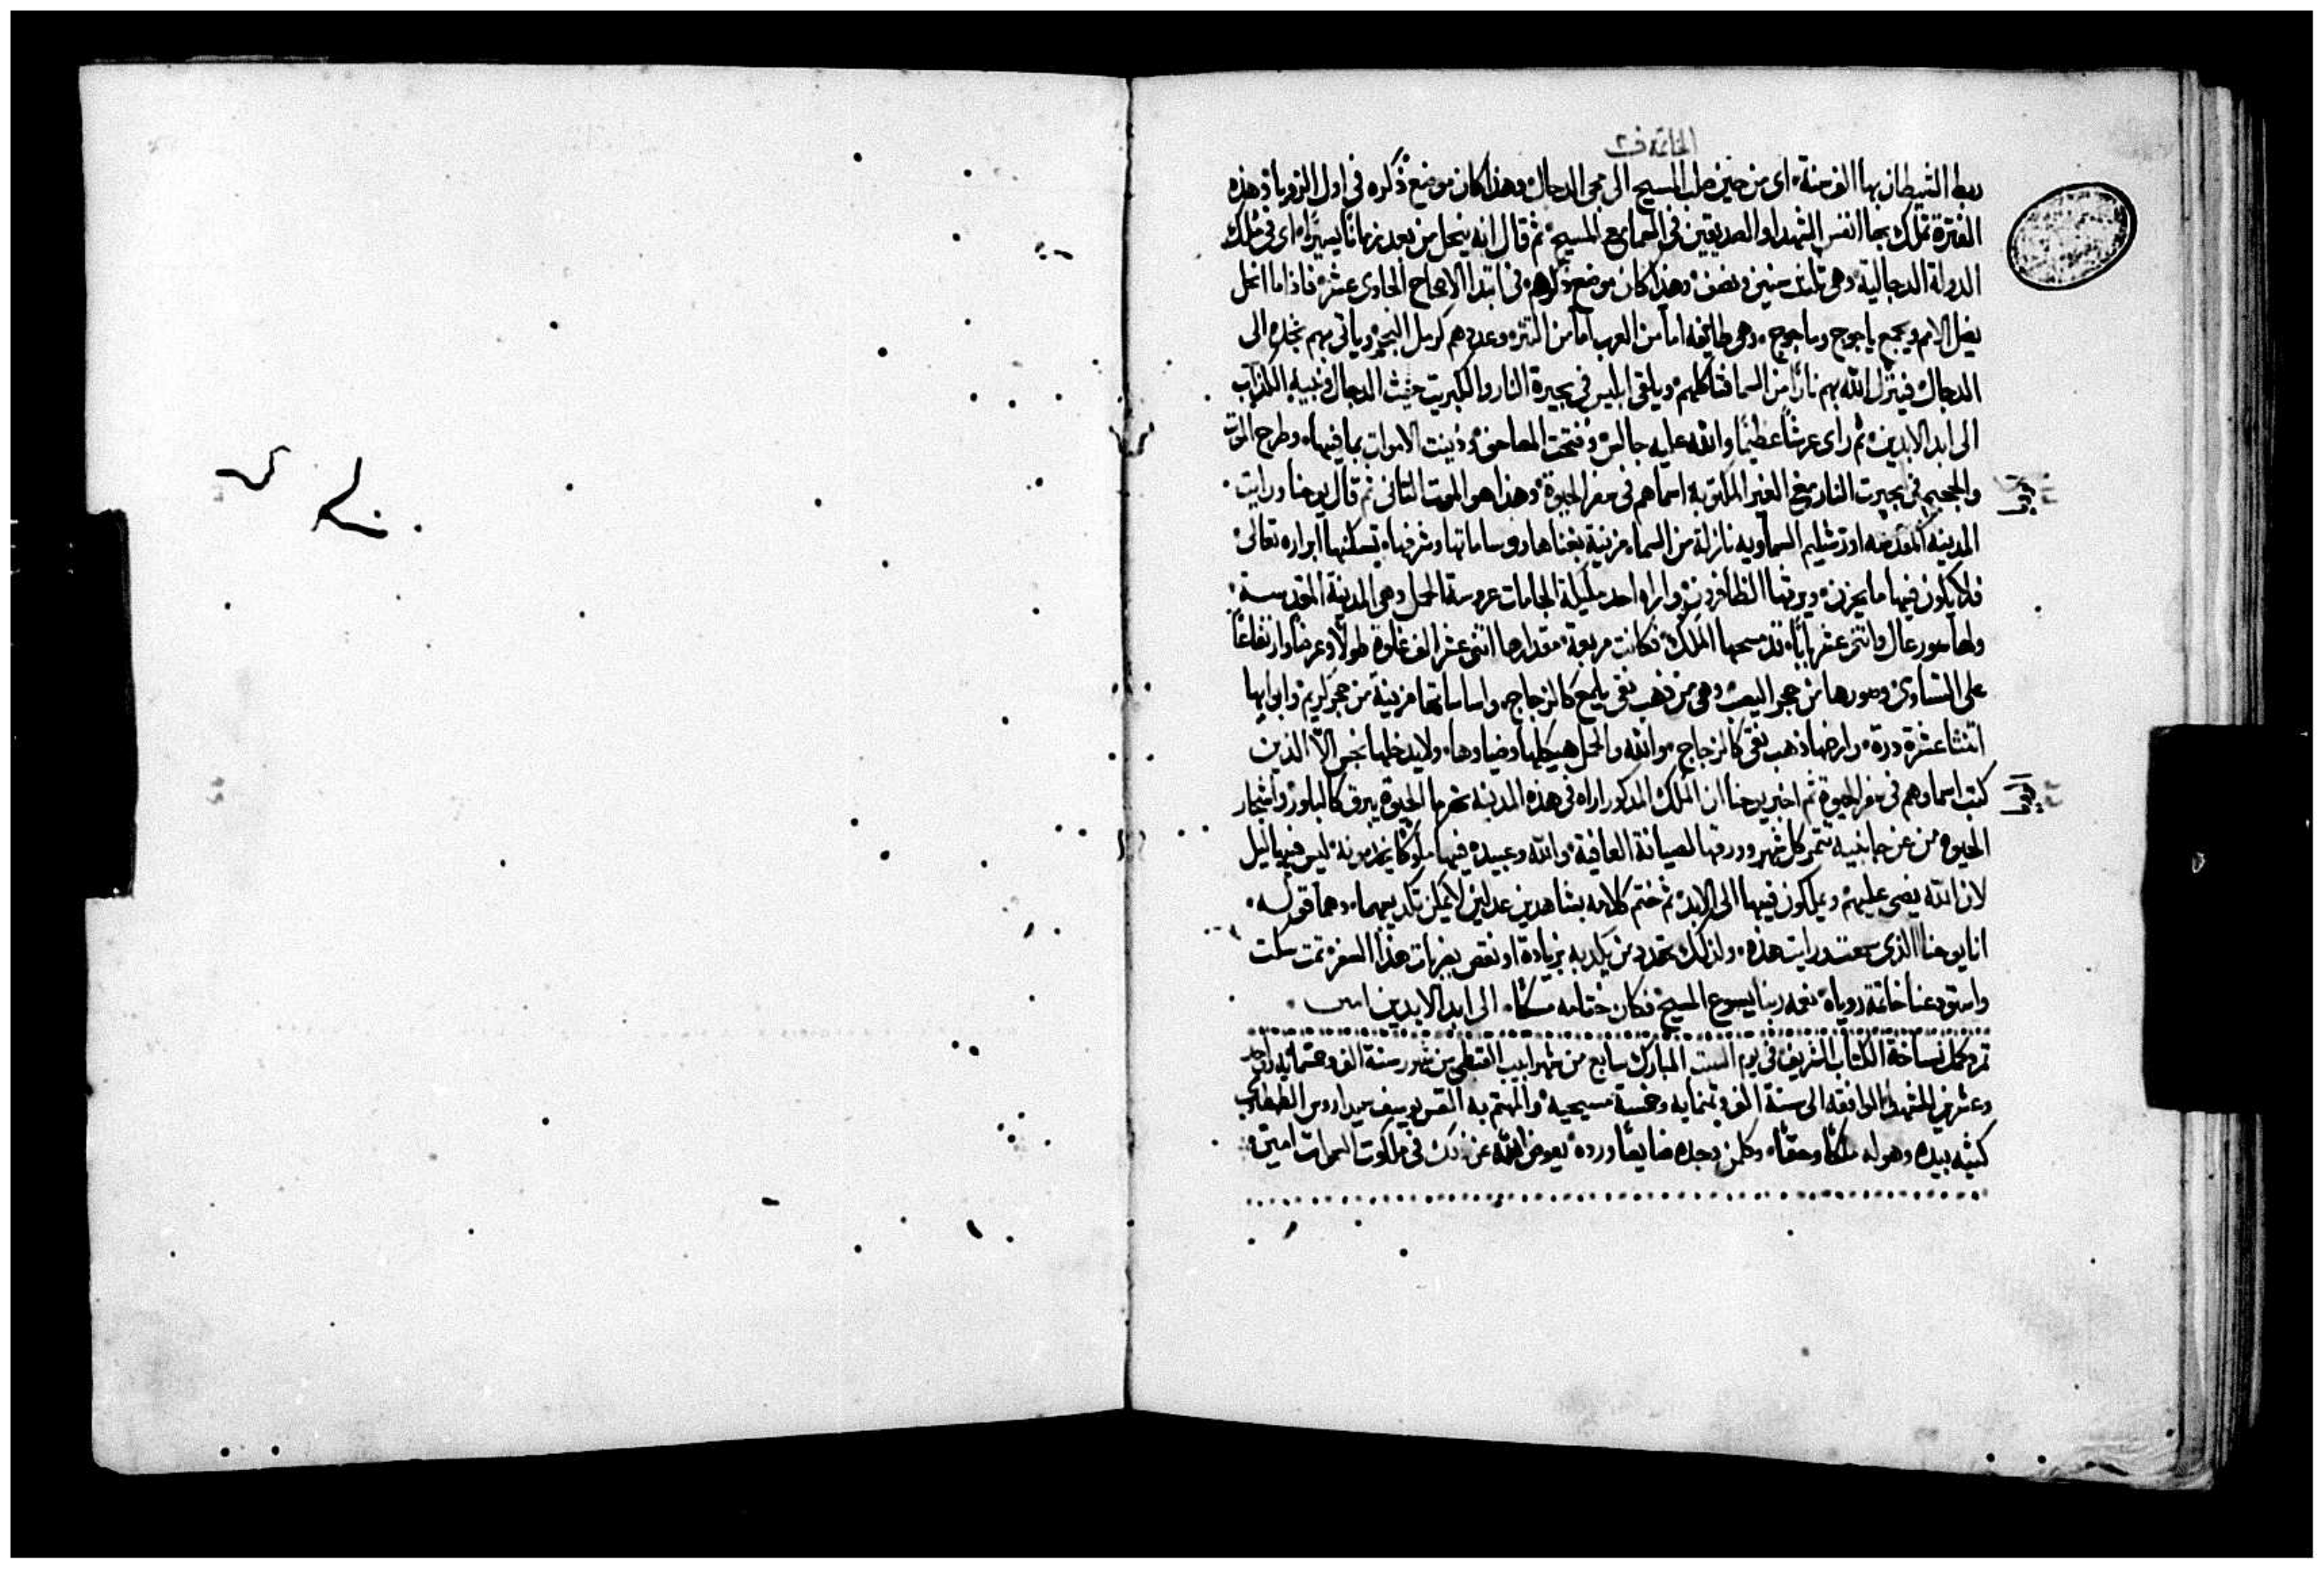 الخاتمة ف٢
ربط الشيطان بها الف سنة اى من حين صلب المسيح الى مجى الدجال وهذا كان موضع ذكره فى اول الرويا وهذه
الفترة تملك بها انفس الشهدا والصديقين فى السما مع المسيح ثم قال انه ينحل من بعد زمانًا يسيرًا اى فى ملك
الدولة الدجالية وهى ثلث سنين ونصف وهذا كان موضع ذكره فى ابتدا الاصحاح الحادى عشر فاذا ما انحل
يضل الامم ويجمع ياجوج وماجوج وهى طايفه اما من العرب اما من التتر وعددهم كرمل البحر وياتى بهم نجده الى
الدجال فينزل الله بهم نارًا من السما فتاكلهم ويلقى ابليس فى بحيرة النار والكبريت حيث الدجال ونبيه الكذاب
الى ابد الابدين ثم راى عرشًا عظيمًا والله عليه جالس وفتحت المصاحف ودينت الاموات بما فيها وطرح الموت
والجحيم فى بحيرت النار مع الغير المكتوبه اسماهم فى سفر الحيوة وهذا هو الموت الثانى ثم قال يوحنا ورايت
المدينه المقدسه اورشليم السماويه نازلة من السما مزينة بغناها وشرفها تسكنها ابراره تعالى
فلا يكون فيها ما يحزن ويرثها الظافرون واراه احد مليكة الجامات عروسة الحمل وهى المدينة المقدسة
ولها سور عال واثنى عشر بابًا قد مسحها الملك فكانت مربعة مقدارها اثنى عشر الف غلوة طولًا وعرضًا وارتفاعًا
على التساوى وسورها من حجر اليصب وهى من ذهب نقى يلمع كالزجاج واساساتها مزينة من حجر كريم وابوابها
اثنتا عشرة درة وارضها ذهب نقى كالزجاج والله والحمل هيكلها وضياوها ولا يدخلها نجس الّا الذين
كتبت اسماوهم فى سفر الحيوة ثم اخبر يوحنا ان الملك المذكور اراه فى هذه المدينه نهر ما الحيوة يبرق كالبلور واشجار
الحيوه من عن جانبيه تثمر كل شهر وورقها لصيانة العافية والله وعبيده فيها ليس فيها ليل
لان الله يضى عليهم ويملكون فيها الى الابد ثم ختم كلامه بشاهدين عدلين لا يمكن تكذيبهما وهما قوله
انا يوحنا الذى سمعت ورايت هذه ولذلك تهدد من يكذبه بزيادة او نقص بضربات هذا السفر تمت كملت
واستودعنا خاتمة روياه نعمه ربنا يسوع المسيح فكان ختامه مسكًا الى ابد الابدين امين
تم وكمل نساخة الكتاب الشريف فى يوم السبت المبارك سابع من شهر ابيب القبطى من شهور سنة الف وخمسمايه واحد
وعشرين للشهدا الموافقه الى سنة الف وثمنمايه وخمسة مسيحيه والمهتم به القس يوسف الطهطاوى
كتبه بيده وهو له ملكًا وحقًا وكلمن وجده ضايعًا ورده يعوض الله عن ذلك فى ملكوت السموات امين